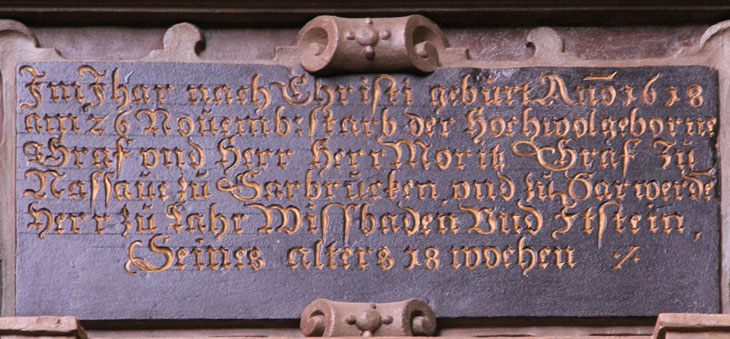 Im Jhar nach Christi geburt Anō 1618
am 26 Nouemb: starb der Hochwolgeborne
Graf vnd Herr Herr Moritz Graf zů
Nassauẽ zů Sarbrůcken, vnd zů Sarwerdẽ
Herr zů Lahr Wissbaden Vnd Itstein,
Seines alters 18 wochen ·/·